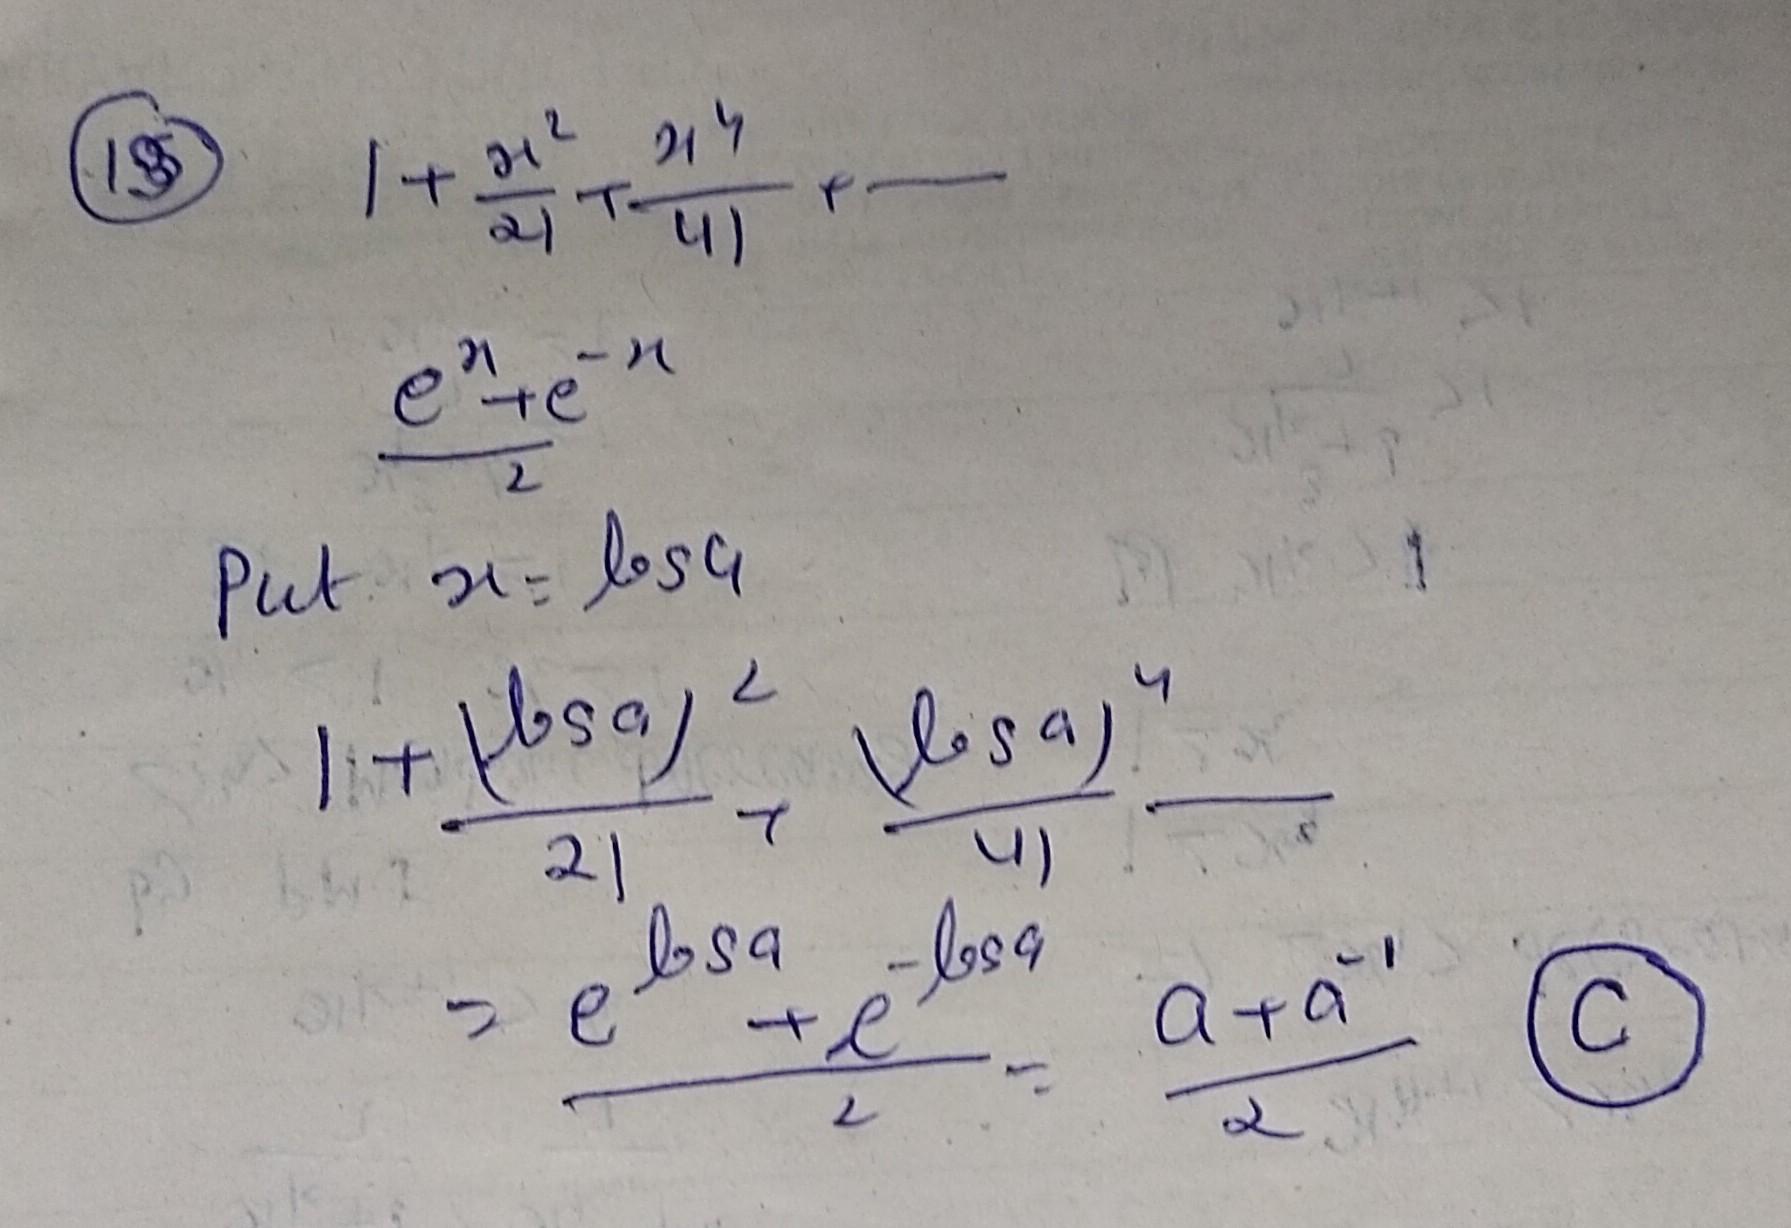 1 + x²/2! + x⁴/4! + —
(eˣ + e⁻ˣ)/2
Put x = log a
1 + (log a)²/2! + (log a)⁴/4! —
= (e^(log a) + e^(-log a))/2 = (a + a⁻¹)/2 (C)